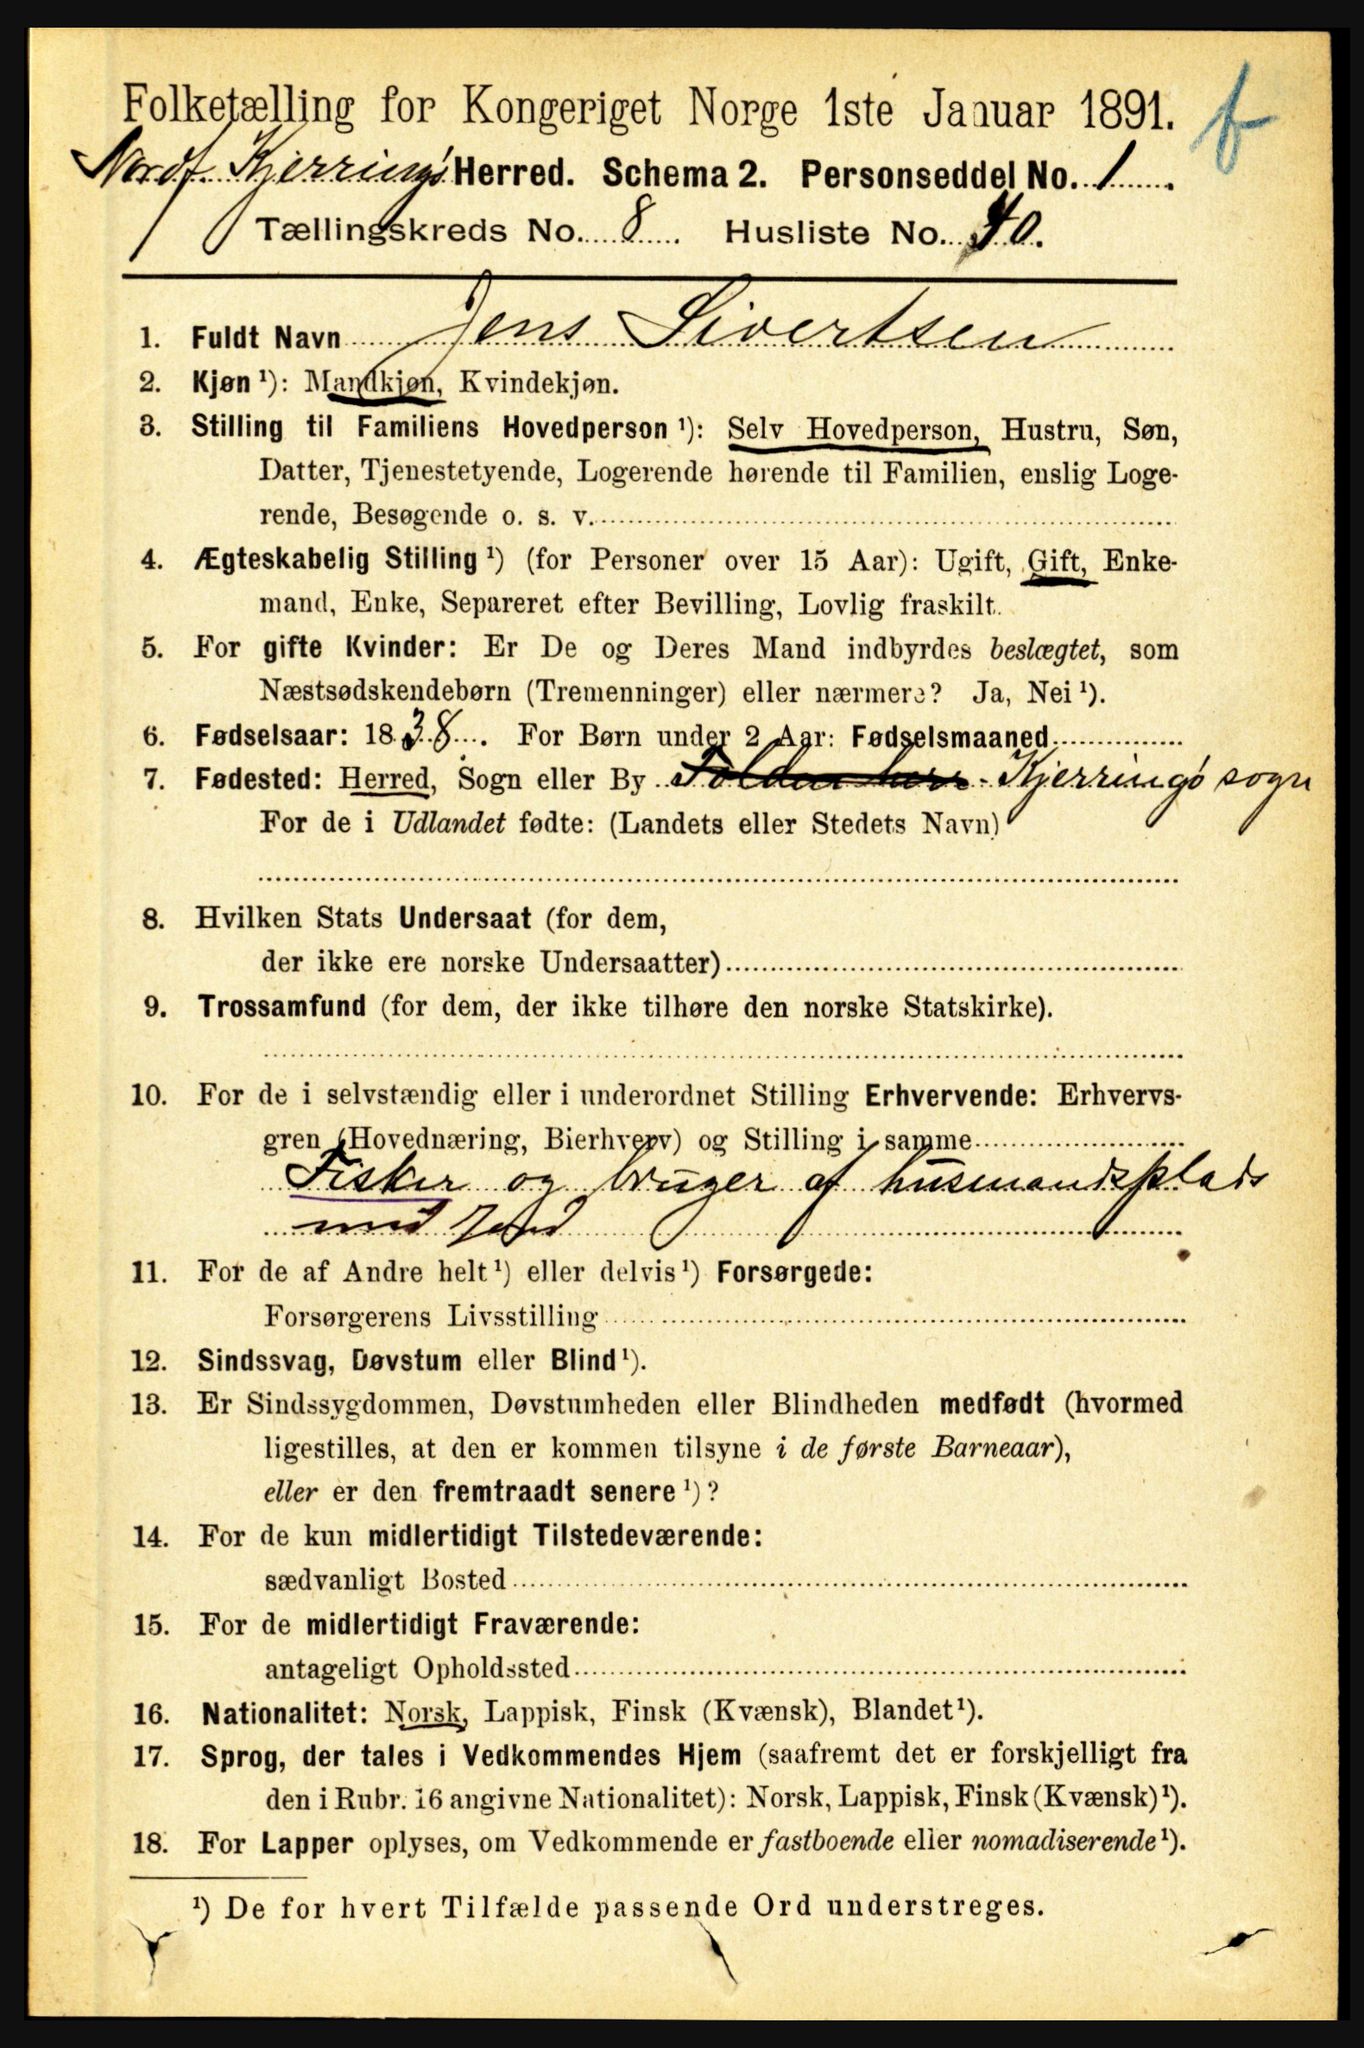 Folketælling for Kongeriget Norge 1ste Januar 1891.
Nordf. Kjerringø Herred. Schema 2. Personseddel No. 1.
Tællingskreds No. 8. Husliste No. 40.
1. Fuldt Navn Jens Sivertsen
2. Kjøn¹): Mandkjøn, Kvindekjøn.
3. Stilling til Familiens Hovedperson¹): Selv Hovedperson, Hustru, Søn,
Datter, Tjenestetyende, Logerende hørende til Familien, enslig Loge-
rende, Besøgende o. s. v.
4. Ægteskabelig Stilling¹) (for Personer over 15 Aar): Ugift, Gift, Enke-
mand, Enke, Separeret efter Bevilling, Lovlig fraskilt.
5. For gifte Kvinder: Er De og Deres Mand indbyrdes beslægtet, som
Næstsødskendebørn (Tremenninger) eller nærmere? Ja, Nei¹).
6. Fødselsaar: 1838. For Børn under 2 Aar: Fødselsmaaned
7. Fødested: Herred, Sogn eller By Folden herr Kjerringø sogn
For de i Udlandet fødte: (Landets eller Stedets Navn)
8. Hvilken Stats Undersaat (for dem,
der ikke ere norske Undersaatter)
9. Trossamfund (for dem, der ikke tilhøre den norske Statskirke).
10. For de i selvstændig eller i underordnet Stilling Erhvervende: Erhvervs-
gren (Hovednæring, Bierhverv) og Stilling i samme
Fisker og bruger af husmandsplads
med jord
11. For de af Andre helt¹) eller delvis¹) Forsørgede:
Forsørgerens Livsstilling
12. Sindssvag, Døvstum eller Blind¹).
13. Er Sindssygdommen, Døvstumheden eller Blindheden medfødt (hvormed
ligestilles, at den er kommen tilsyne i de første Barneaar),
eller er den fremtraadt senere¹)?
14. For de kun midlertidigt Tilstedeværende:
sædvanligt Bosted
15. For de midlertidigt Fraværende:
antageligt Opholdssted
16. Nationalitet: Norsk, Lappisk, Finsk (Kvænsk), Blandet¹).
17. Sprog, der tales i Vedkommendes Hjem (saafremt det er forskjelligt fra
den i Rubr. 16 angivne Nationalitet): Norsk, Lappisk, Finsk (Kvænsk)¹).
18. For Lapper oplyses, om Vedkommende er fastboende eller nomadiserende¹).
¹) De for hvert Tilfælde passende Ord understreges.